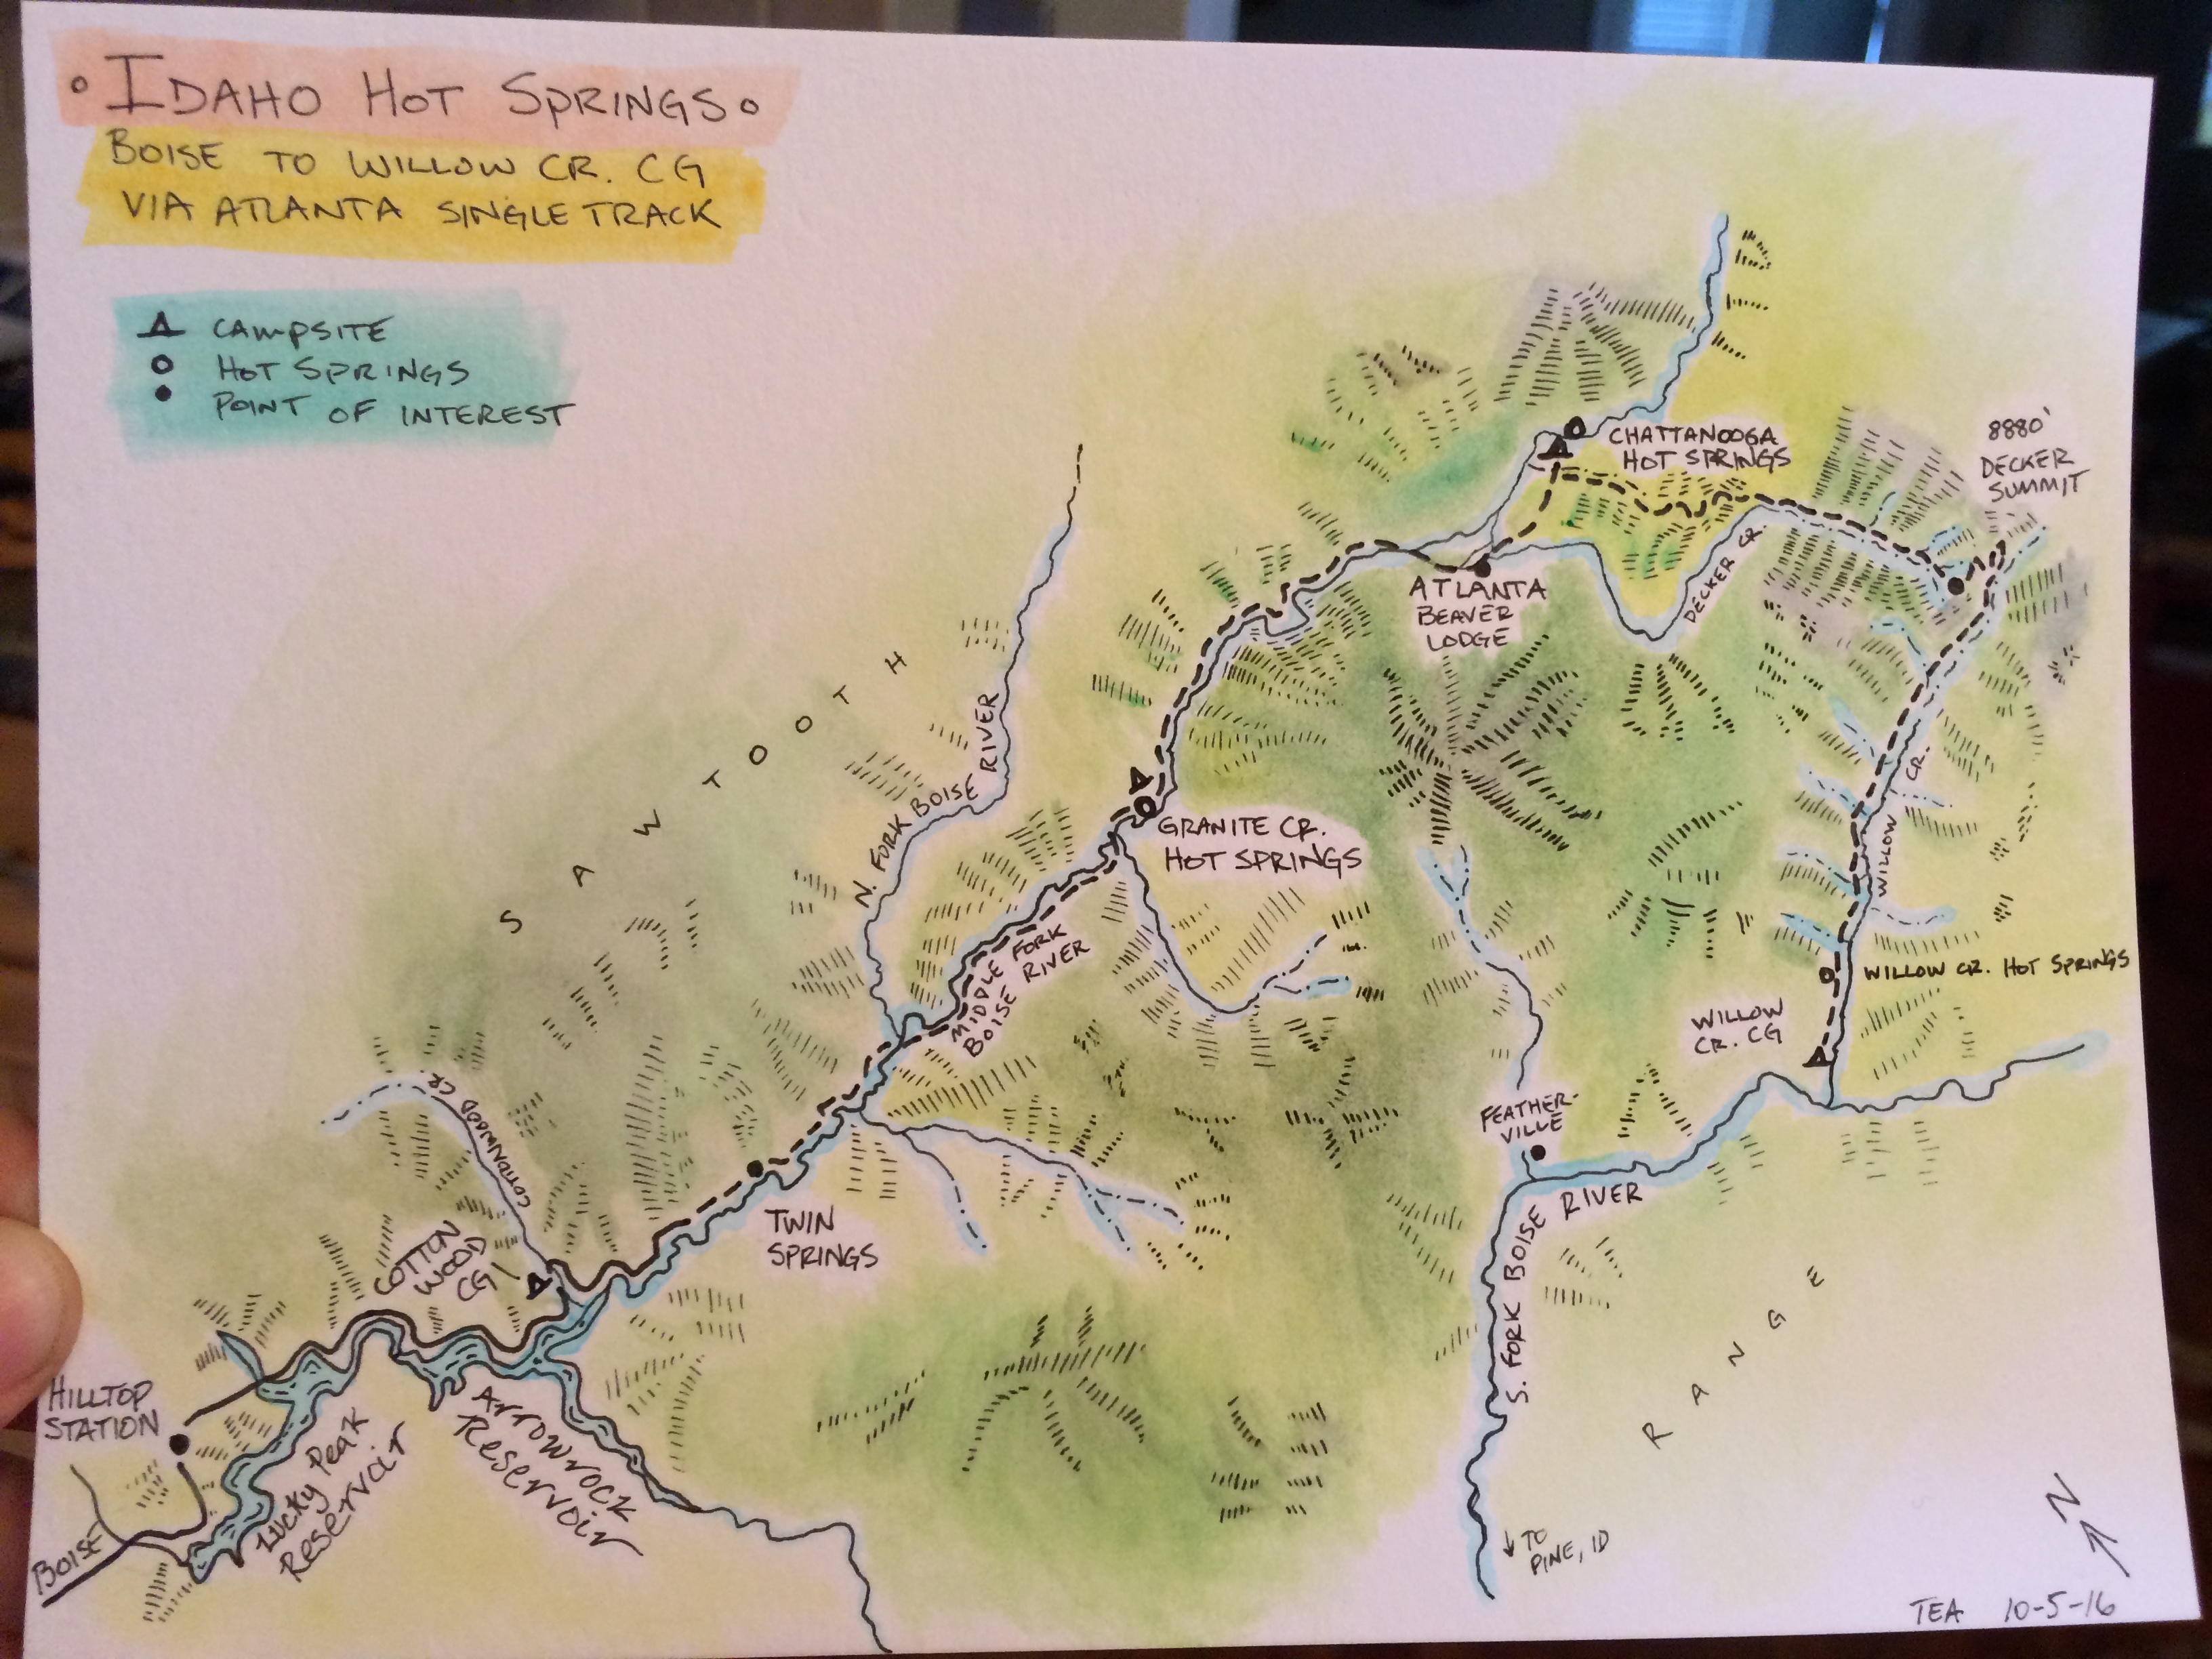 IDAHO HOT SPRINGS
BOISE TO WILLOW CR. CG
VIA ATLANTA SINGLETRACK
CAMPSITE
HOT SPRINGS
POINT OF INTEREST
CHATTANOOGA
HOT SPRINGS
8880'
DECKER
SUMMIT
ATLANTA
BEAVER
LODGE
DECKER CR.
SAWTOOTH
N. FORK BOISE RIVER
GRANITE CR.
HOT SPRINGS
MIDDLE FORK
BOISE RIVER
WILLOW CR.
WILLOW CR. HOT SPRINGS
WILLOW
CR. CG
FEATHER-
VILLE
COTTONWOOD CR.
COTTON
WOOD
CG
TWIN
SPRINGS
S. FORK BOISE RIVER
RANGE
HILLTOP
STATION
Lucky Peak
Reservoir
Arrowrock
Reservoir
BOISE
TO
PINE, ID
N
TEA 10-5-16